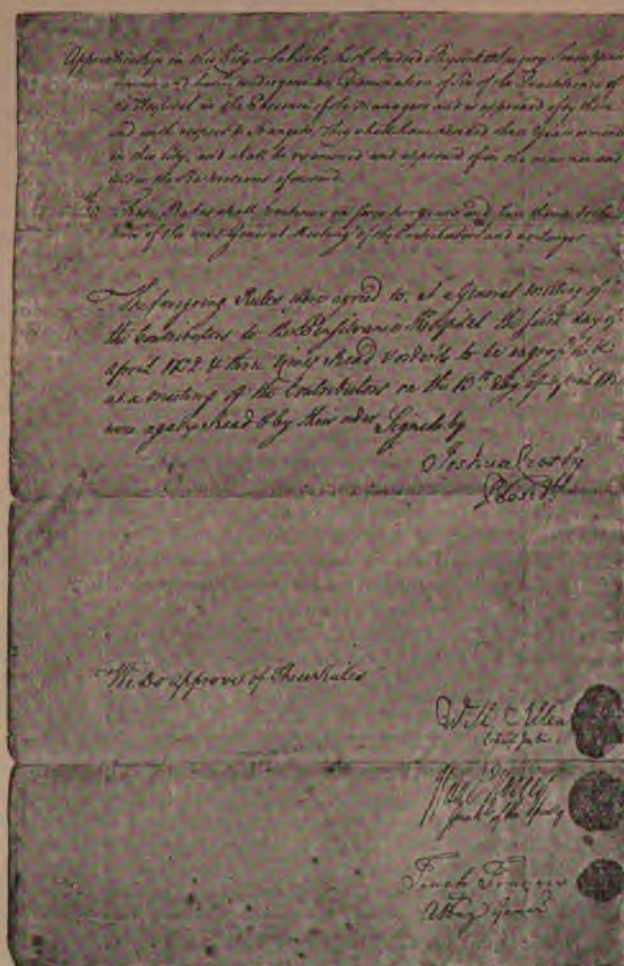 Apprenticeship in this City or Suburbs, hath studied Physick or Surgery Seven Years
undergone an Examination of Six of the Practitioners of
the Hospital in the Presence of the Managers and is approved of by them
and with respect to Strangers, they shall have resided three Years or more
in this City, and shall be examined and approved of in the manner and
under the Restrictions aforesaid.
These Rules shall continue in force two years and from thence to the
of the next General Meeting of the Contributors and no longer
The foregoing Rules were agreed to, at a General Meeting of
the Contributors to the Pensilvania Hospital the day of
april & three times Read & order'd to be
at a meeting of the Contributors on the 13th day of april
were again Read & by their order Signed by
Joshua Crosby
Presidt
We Do approve of These Rules
Will Allen
Chief Justice
Speakr of the
Tench Francis
Attory General